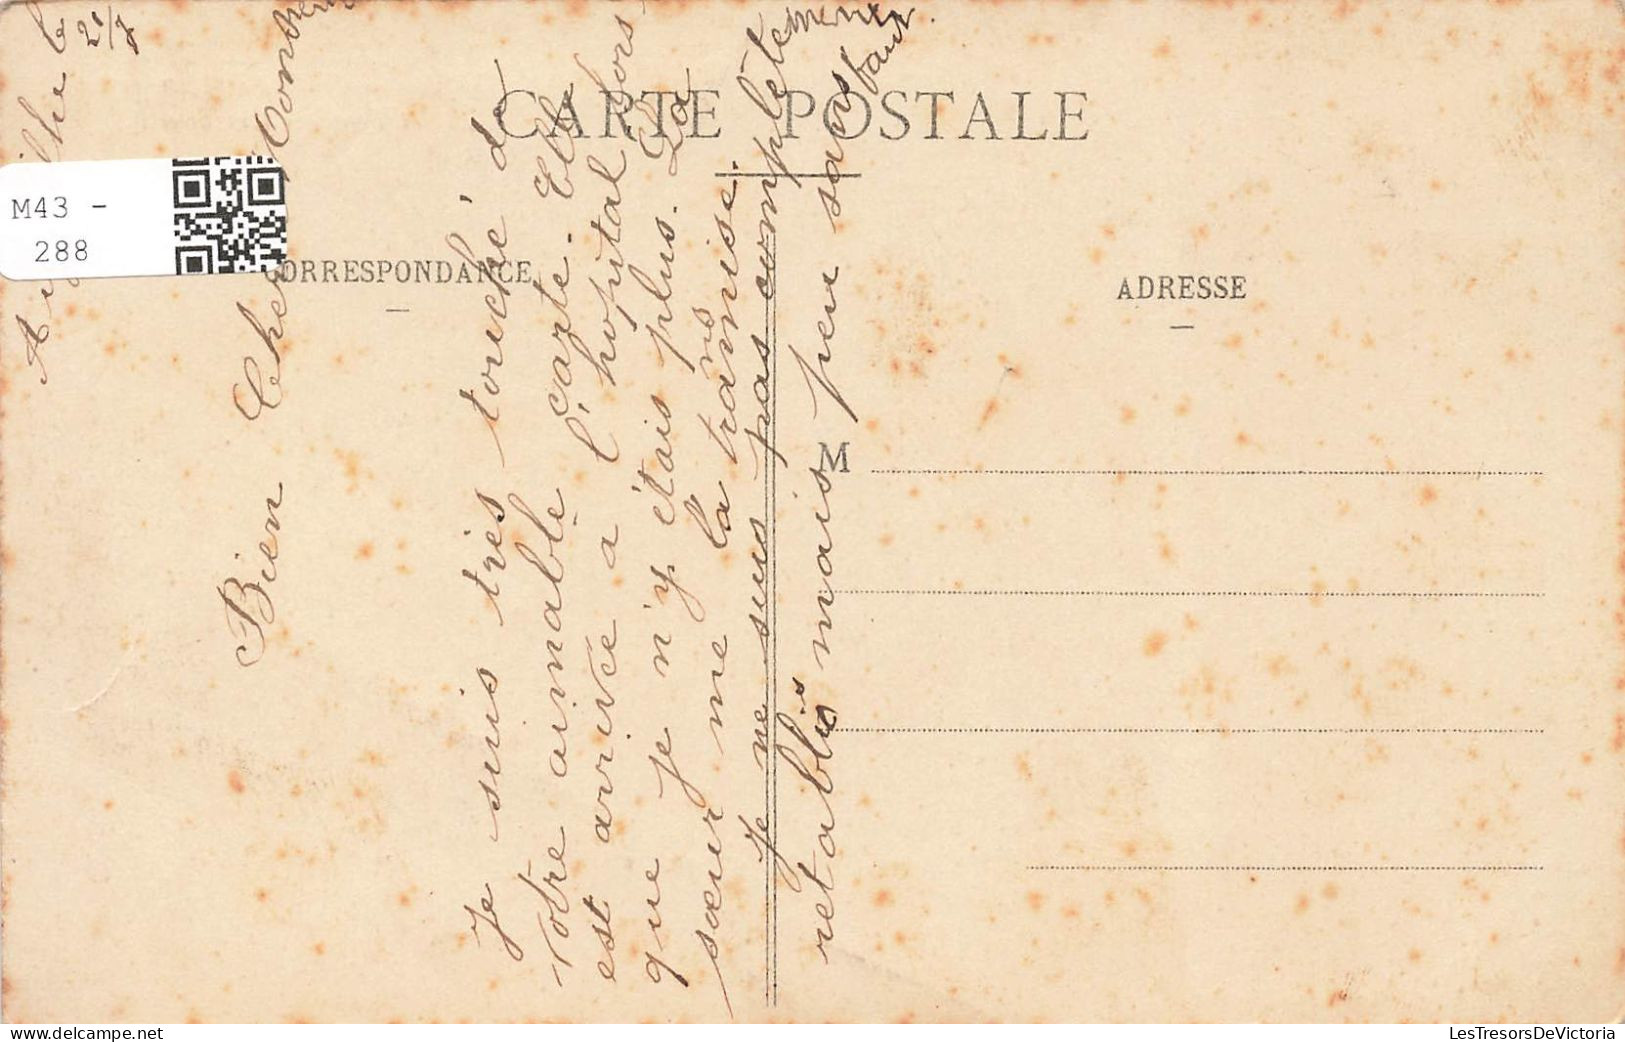 CARTE POSTALE
CORRESPONDANCE
ADRESSE
M
M43 -
288
le 2/7
Bien Cher
Je suis très touché de
votre aimable carte. Elle
est arrivée a l'hopital lors
que je n'y étais plus. La
sœur me l'a transmise.
Je ne suis pas complètement
retablis mais peu sans faut
M43 - 288
LesTresorsDeVictoria